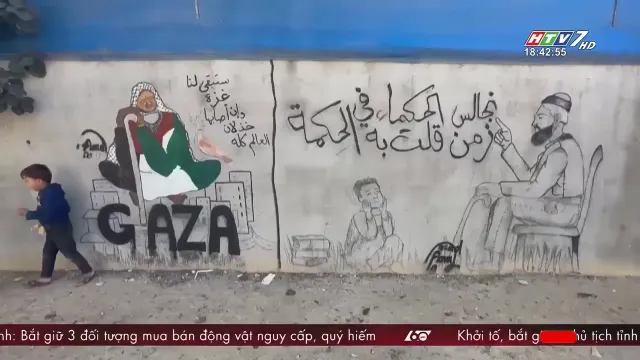 HTV7 HD
18:42:55
ستبقى لنا
غزة
وإن أصابها
خذلان
العالم كله
GAZA
نجالس الحكماء في
زمن قلت به الحكمة
nh: Bắt giữ 3 đối tượng mua bán động vật nguy cấp, quý hiếm
Khởi tố, bắt g hủ tịch tỉnh